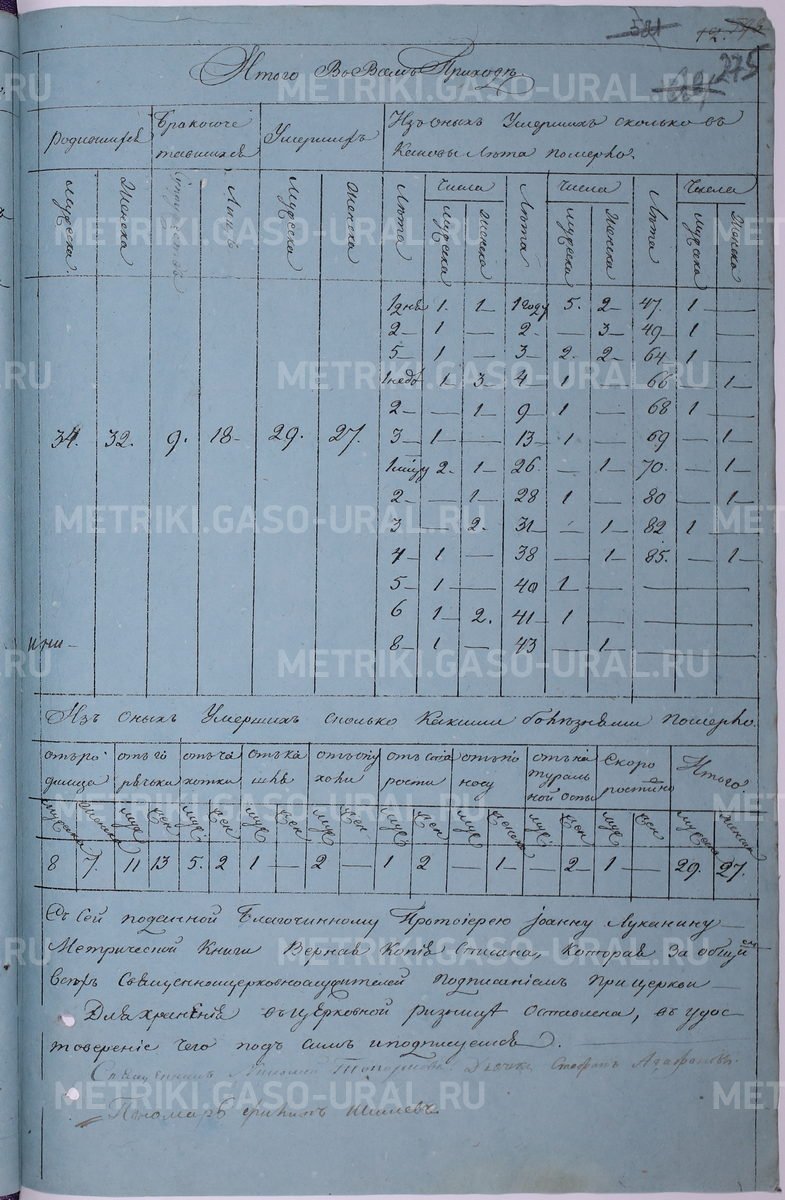 581
275
Итого Во Всемъ Приходѣ
Родившихся Бракосочетавшихся Умершихъ Изъ оныхъ Умершихъ сколько въ
Каковы Лѣта померло.
Мужеска Женска Супружествъ Лицъ Мужеска Женска Лѣта Числа Мужеска Женска Лѣта Числа Мужеска Женска Лѣта Числа Мужеска Женска
1 дня 1. 1— 1 году 5. 2— 47. 1 —
2— 1 — 2— — 3— 49 1 —
5 1 — 3— 2. 2— 64 1 —
1 нед 1 3— 4 1 — 66 — 1—
2— — 1— 9 1 — 68 1 —
34. 32. 9. 18— 29. 27. 3— 1 — 13— 1 — 69 — 1—
1 мцу 2. 1— 26. — 1— 70. — 1—
2— — 1— 28 1 — 80 — 1—
3 — 2. 31— — 1— 82 1 —
4 1 — 38 — 1— 85. — 1—
5— 1 — 40 1 — — — —
6 1 2. 41— 1 — — — —
8— 1 — 43 — 1— — — —
Изъ Оныхъ Умершихъ сколько Какими болѣзнями померло.
отъ родимца отъ горячки отъ чахотки отъ кашля отъ опухоли отъ старости отъ поносу отъ натуральной оспы Скоропостижно Итого.
Мужеска Женска Муж Жен Муж Жен Муж Жен Муж Жен Муж Жен Муж Женска Муж Жен Муж Жен Мужеска Женска
8 7. 11 13 5. 2 1— — 2— — 1 2 — 1— — 2— 1— — 29. 27.
Съ Сей поданной Благочинному Протоіерею Іоанну Луканину
Метрической Книги Верная Копія Списана, Которая За общимъ
всѣхъ Священноцерковнослужителей подписаніемъ при церкви
Для храненія въ церковной ризницѣ оставлена, въ удос
товереніе чего подъ симъ и подписуемся.
Священникъ Николай Топорковъ. Дьячокъ Стефанъ
Пономарь